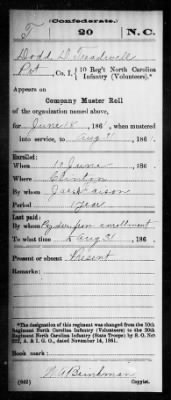 (Confederate.)
T 20 N.C.
Dodd D. Treadwell
Pvt, Co. I, 10 Reg't North Carolina
Infantry (Volunteers).*
Appears on
Company Muster Roll
of the organization named above,
for June 18, 186 , when mustered
into service, to Aug 31, 186 .
Enlisted:
When 18 June, 186 .
Where Clinton
By whom Jas Faison
Period 1 year
Last paid:
By whom
To what time Aug 31, 186 .
Present or absent Present
Remarks:
*The designation of this regiment was changed from the 10th
Regiment North Carolina Infantry (Volunteers) to the 20th
Regiment North Carolina Infantry (State Troops) by S. O. No.
222, A. & I. G. O., dated November 14, 1861.
Book mark:
(642) Copyist.